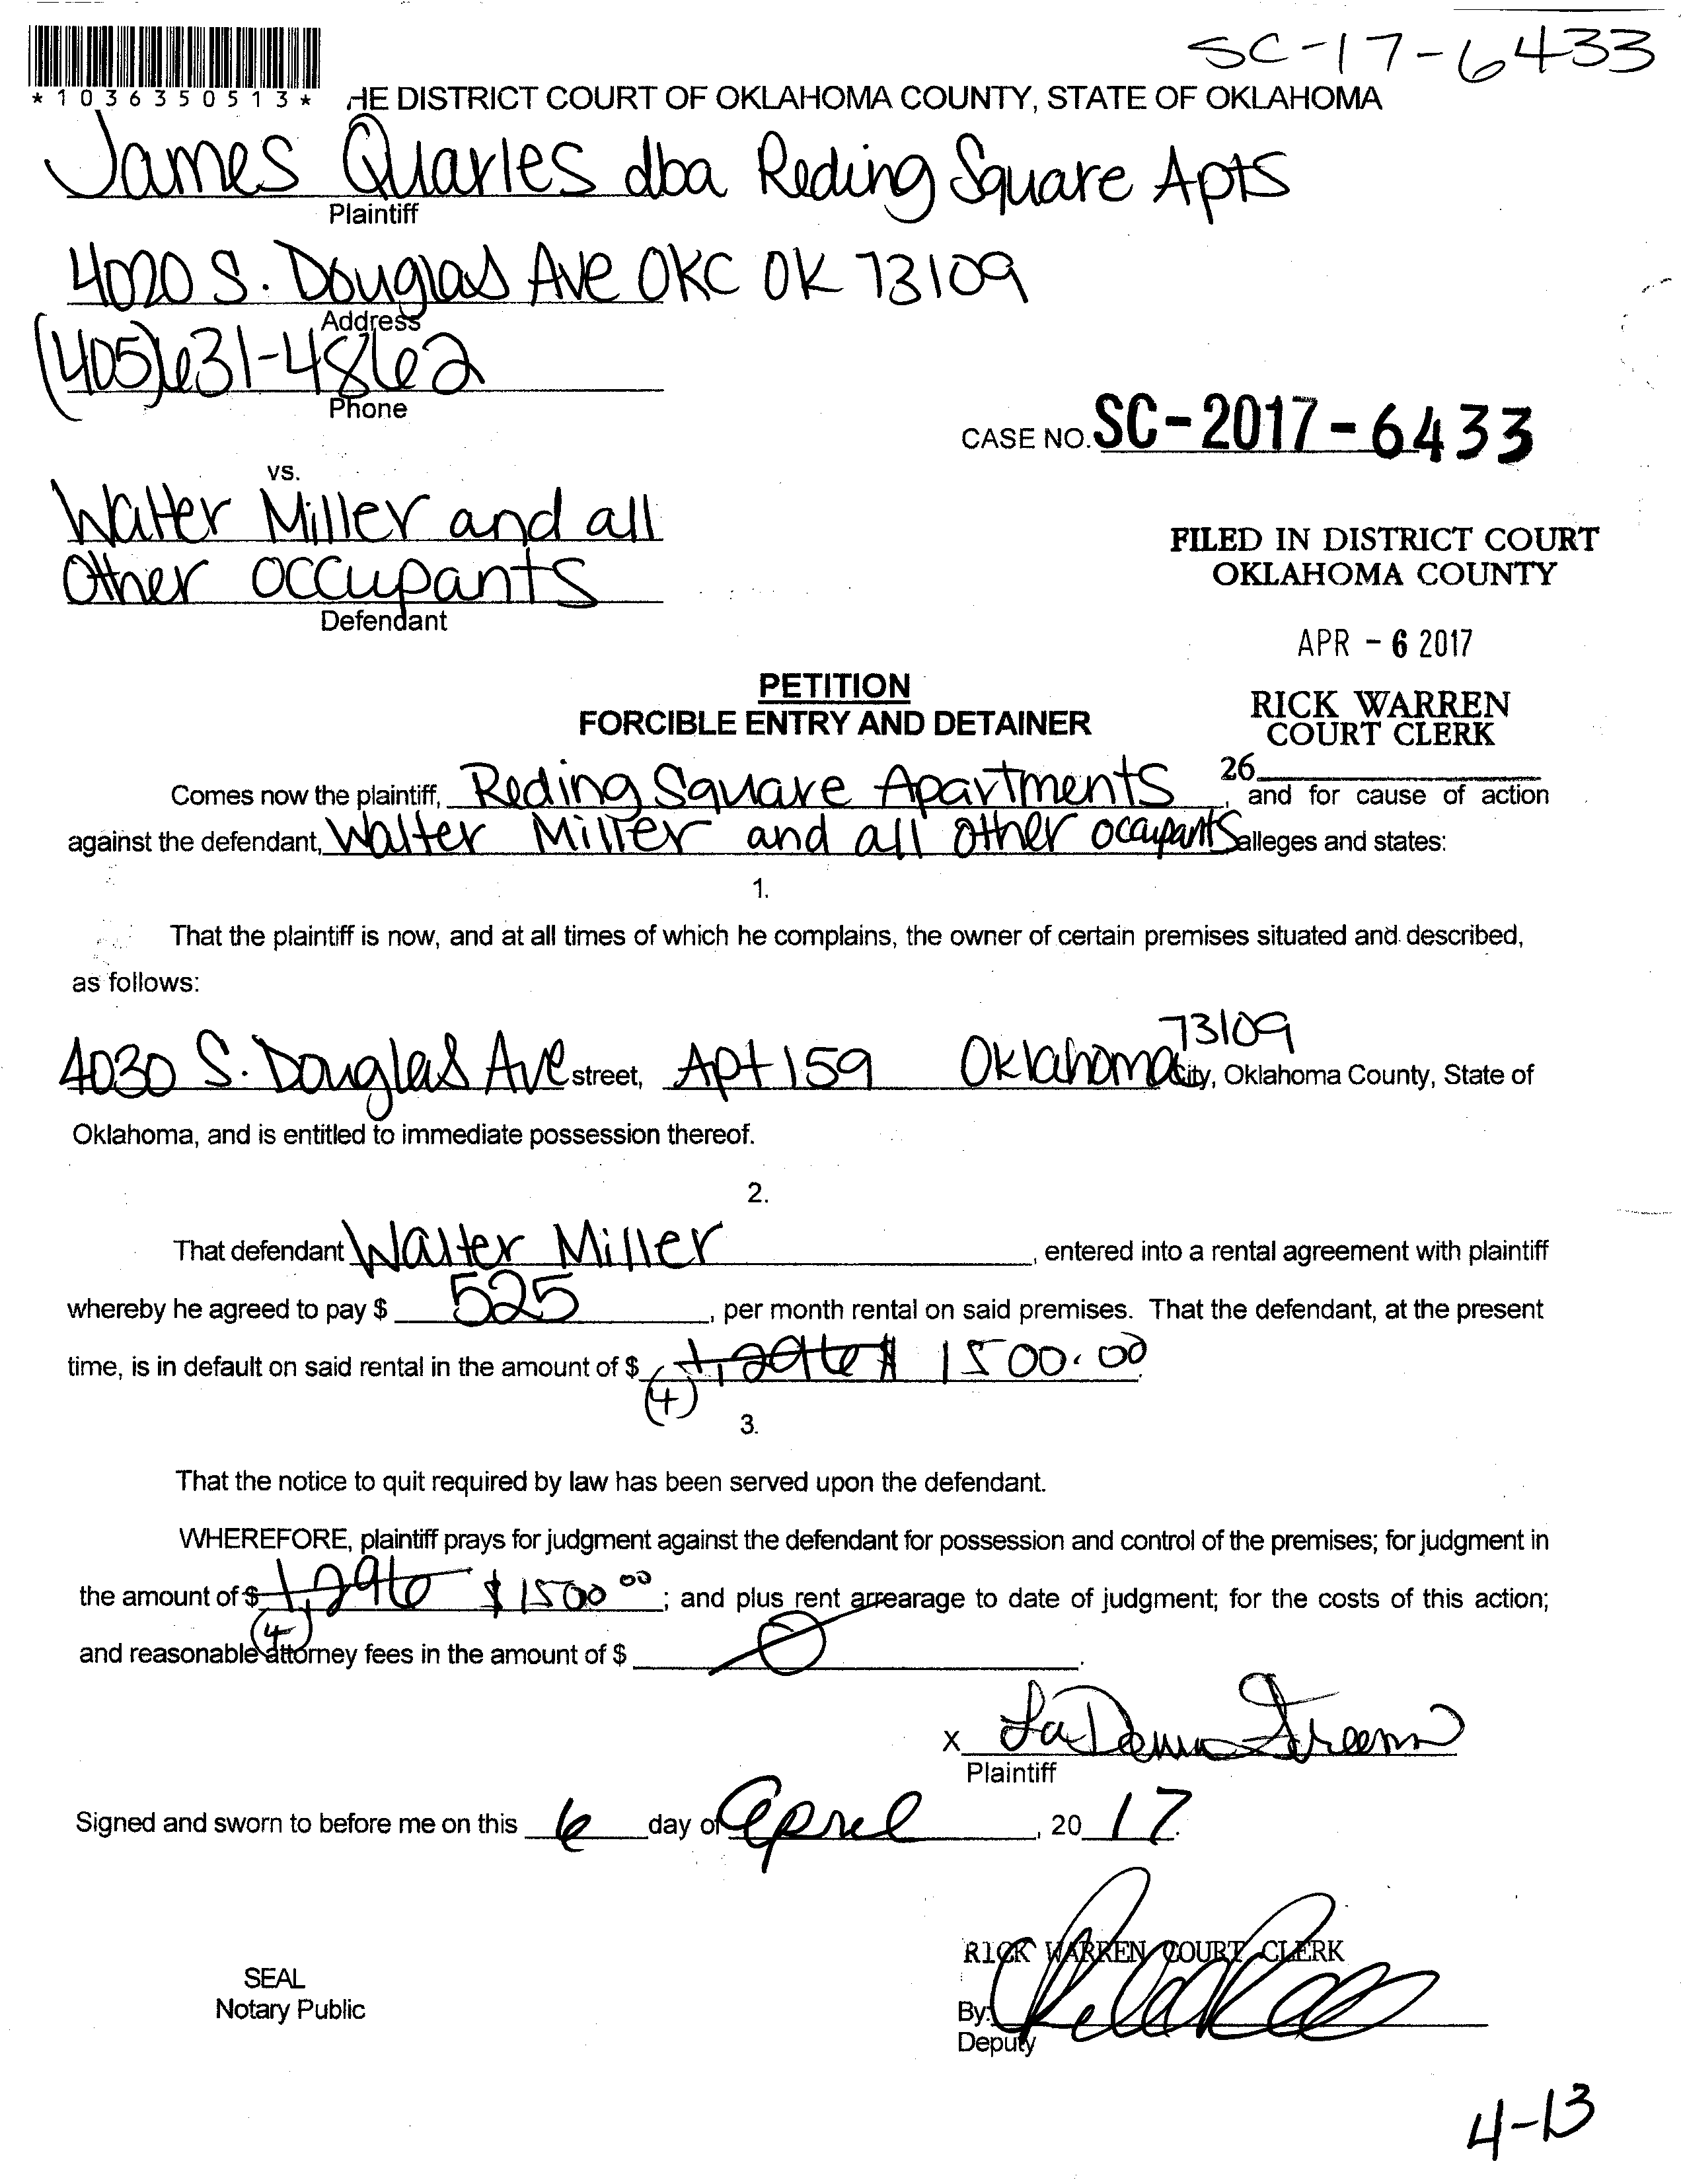 SC-17-6433
*1036350513* HE DISTRICT COURT OF OKLAHOMA COUNTY, STATE OF OKLAHOMA
James Quarles dba Reding Square Apts
Plaintiff
4020 S. Douglas Ave OKC OK 73109
Address
(405)631-4862
Phone
CASE NO. SC-2017-6433
vs.
Walter Miller and all
Other occupants
Defendant
FILED IN DISTRICT COURT
OKLAHOMA COUNTY
APR - 6 2017
RICK WARREN
COURT CLERK
26
PETITION
FORCIBLE ENTRY AND DETAINER
Comes now the plaintiff, Reding Square Apartments, and for cause of action
against the defendant, Walter Miller and all other occupants alleges and states:
1.
That the plaintiff is now, and at all times of which he complains, the owner of certain premises situated and described,
as follows:
73109
4030 S. Douglas Ave street, Apt 159 Oklahoma City, Oklahoma County, State of
Oklahoma, and is entitled to immediate possession thereof.
2.
That defendant Walter Miller, entered into a rental agreement with plaintiff
whereby he agreed to pay $ 525, per month rental on said premises. That the defendant, at the present
time, is in default on said rental in the amount of $ 1,296 $ 1500.00.
(4)
3.
That the notice to quit required by law has been served upon the defendant.
WHEREFORE, plaintiff prays for judgment against the defendant for possession and control of the premises; for judgment in
the amount of $ 1,296 $ 1500 00; and plus rent arrearage to date of judgment; for the costs of this action;
(4)
and reasonable attorney fees in the amount of $ 0.
x
Plaintiff
Signed and sworn to before me on this 6 day of April, 20 17.
RICK WARREN COURT CLERK
SEAL
Notary Public
By:
Deputy
4-13